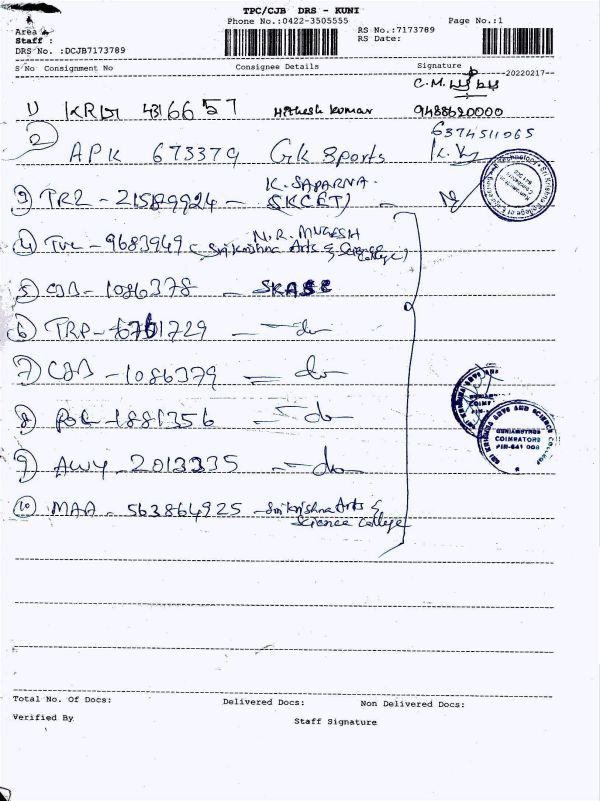 TPC/CJB DRS - KUNI
Phone No.:0422-3505555 Page No.:1
Area
Staff :
DRS No. :DCJB7173789
RS No.:7173789
RS Date:
S No Consignment No Consignee Details Signature
20220217
C.M.
1) KRDT 4316657 Hithesh Kumar 9488620000
6374511065
2) APK 673379 GK Sports K.V
K. SAPARNA.
3) TRZ - 21589924 - (SKCET)
N.R. MUGESH
4) TVL - 9683949 (Sri Krishna Arts & Science College)
5) CJB - 1086378 - SKASC
6) TRP - 6761729 - do
7) CJB - 1086379 - do
8) POL - 1881356 - do
9) AWY - 2013335 - do
10) MAA - 563864925 - Sri Krishna Arts &
Science College
SRI KRISHNA ARTS AND SCIENCE COLLEGE
KUNIAMUTHUR
COIMBATORE
PIN-641 008
Total No. Of Docs: Delivered Docs: Non Delivered Docs:
Verified By Staff Signature